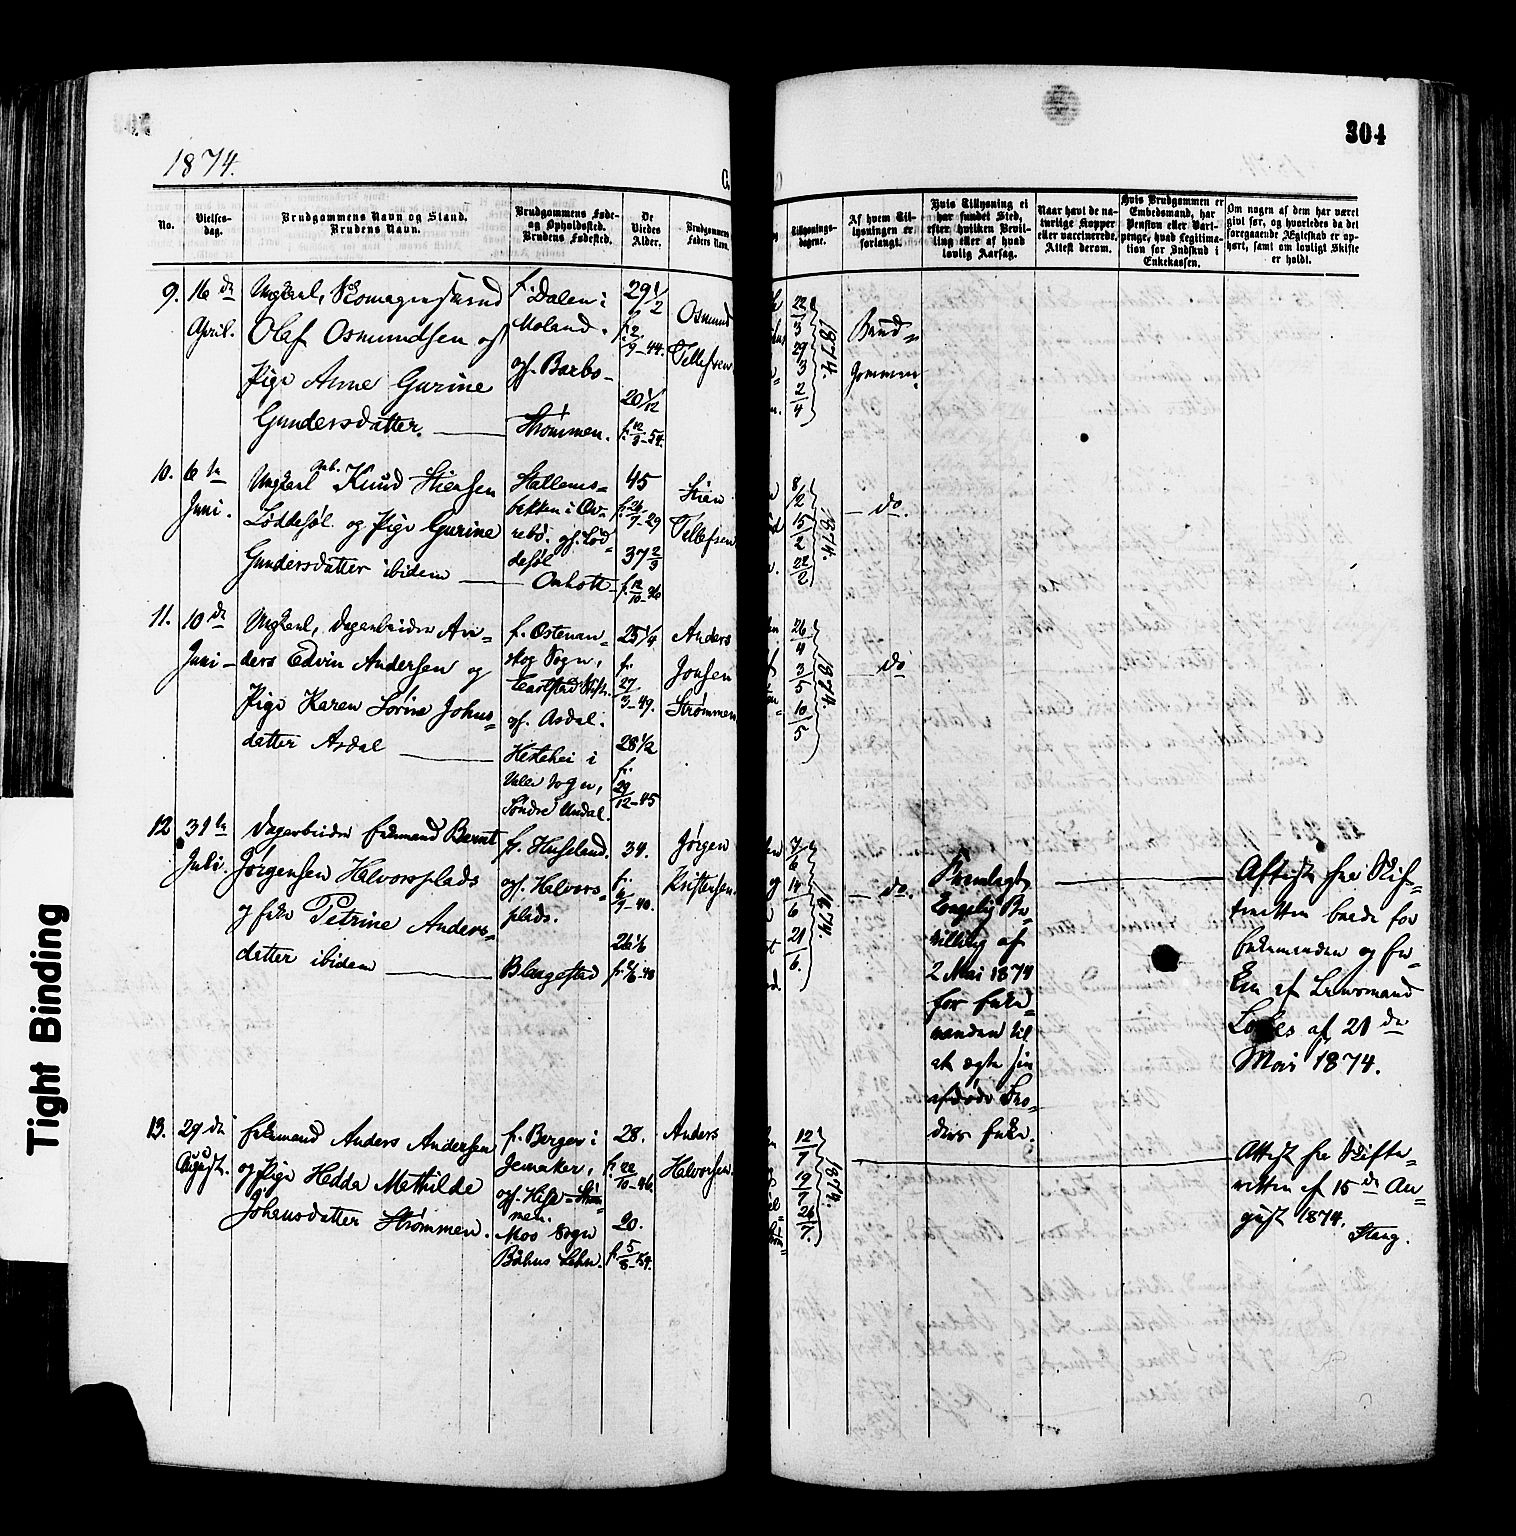 304
1874.
No.
Vielses-
dag.
Brudgommens Navn og Stand.
Brudens Navn.
Brudgommens Føde-
og Opholdssted.
Brudens Fødested.
De
Viedes
Alder.
Brudgommens
Faders Navn.
Tillysnings-
dagene.
Af hvem Til-
lysningen er
forlangt.
Hvis Tillysning ei
har fundet Sted,
efter hvilken Bevil-
ling eller af hvad
lovlig Aarsag.
Naar havt de na-
turlige Kopper
eller vaccinerede.
Attest derom.
Hvis Brudgommen er
Embedsmand, har
Pension eller Vart-
penge, hvad Legitima-
tion for Indskud i
Enkekassen.
Om nogen af dem har været
gift før, og hvorledes da det
foregaaende Ægteskab er op-
hørt, samt om lovligt Skifte
er holdt.
9.
16 de
April.
Ungkarl, Skomagersvend
Olaf Osmundsen og
Pige Anne Gurine
Gundersdatter.
f. Dalen i
Moland.
og. Barbo-
Strømmen.
29 1/2
f. 2/9-44.
20 1/12
f. 12/3-54.
Osmund
Tellefsen
22/3
29/3
2/4
1874.
Brud-
gommen
10.
6 te
Juni.
Ungkarl Gmb. Knud Stiensen
Løddesøl og Pige Gurine
Gundersdatter ibidem
Stallems-
bekken i Øv-
rebø. og. Lød-
desøl
Omholt
45
f. 26/7-29
37 2/3
f. 12/10-36
Stien
Tellefsen
8/2
15/2
22/2
1874.
do.
11.
10 de
Juni
Ungkarl, Dagarbeider An-
ders Edvin Andersen og
Pige Karen Sørine Johns-
datter Asdal
f. Østenan-
skog Sogn,
Carlstad Stift.
og. Asdal.
Hestehei i
Valle Sogn,
Søndre Undal.
25 1/4
f.
27/3-49.
28 1/2
f.
29/12-45
Anders
Jonsen
Strømmen
26/4
3/5
10/5
1874.
do
12
31 te
Juli.
Dagarbeider Enkemand Bernt
Jørgensen Halvorsplads
og Enke Petrine Anders-
datter ibidem
f. Huseland.
og. Halvors-
plads.
Blengestad
34.
f.
4/9-40.
26 1/6
f. 2/6-48
Jørgen
Kristensen.
7/6
14/6
21/6.
1874.
do.
Fremlagt
Kongelig Be-
villing af
2 Mai 1874
for Enke-
manden til
at ægte sin
afdøde Bro-
ders Enke.
Attester fra Skif-
teretten baade for
Enkemanden og En-
ken af Lensmand
af 21 de
Mai 1874.
13.
29 de
August.
Enkemand Anders Andersen
og Pige Hedda Mathilde
Johansdatter Strømmen.
f. Berger i
Jemaker,
og. Hisø-Strøm-
men.
Mos Sogn
Båhus Lehn.
28.
f. 22/10-46.
20.
f. 5/8-54.
Anders
Halvorsen
12/7
19/7
26/7.
1874.
Attest fra Skifte-
retten af 15 de Au-
gust 1874.
Stang.
Tight Binding